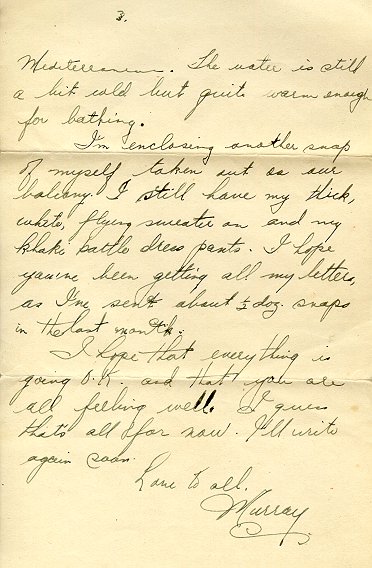 3.
Mediterranean. The water is still
a bit cold but quite warm enough
for bathing.
I'm enclosing another snap
of myself taken out on our
balcony. I still have my thick,
white, flying sweater on and my
khaki battle dress pants. I hope
you've been getting all my letters,
as I've sent about ½ doz. snaps
in the last month.
I hope that everything is
going O.K. and that you are
all feeling well. I guess
that's all for now. I'll write
again soon.
Love to all.
Murray